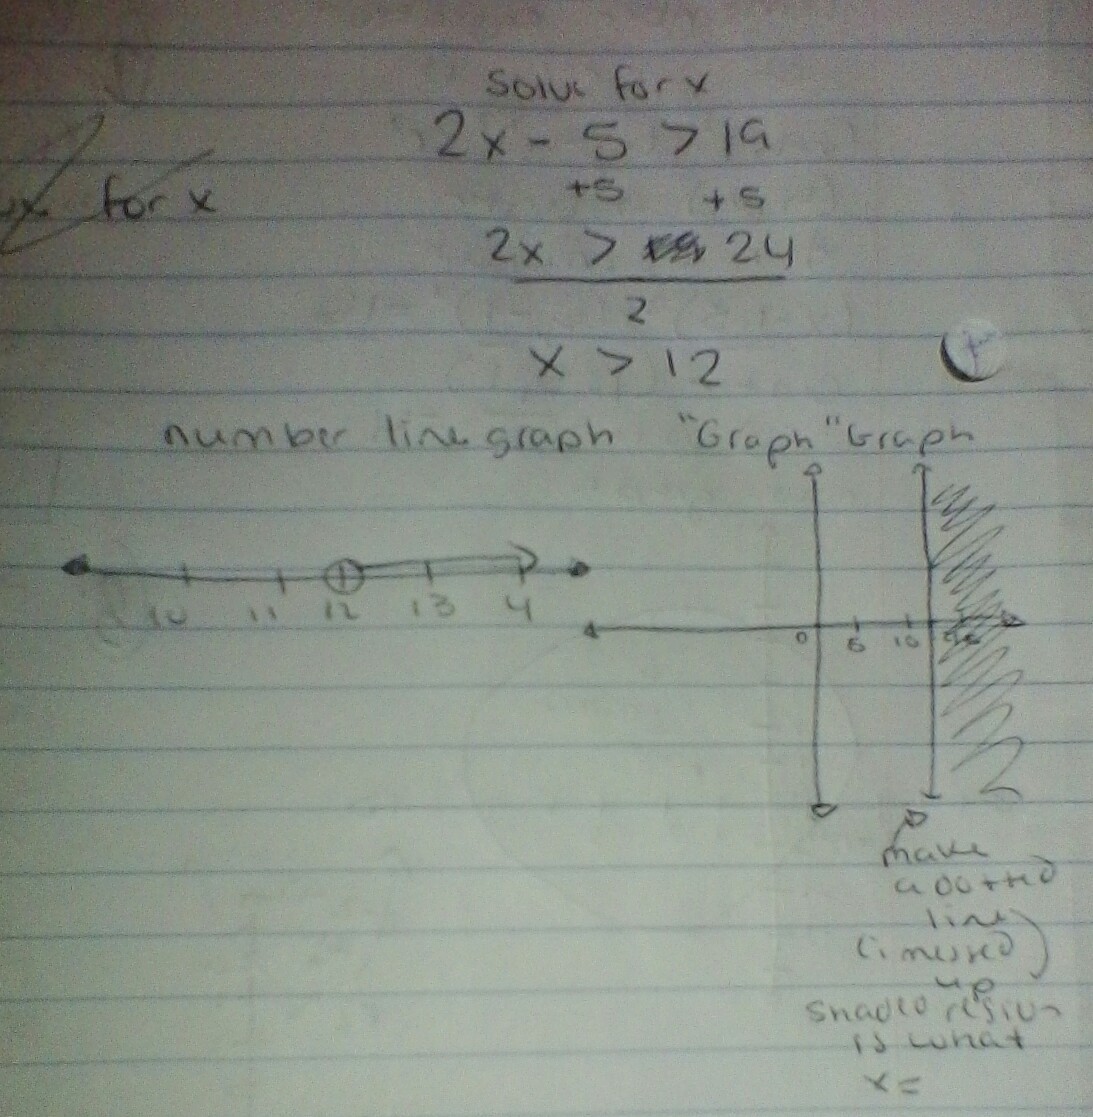 Solve for x
2x - 5 > 19
+5 +5
for x
2x > 24
2
x > 12
number line graph "Graph" Graph
10 11 12 13 4
0 5 10
make
a dotted
line
(i messed
up)
shaded
is what
x =